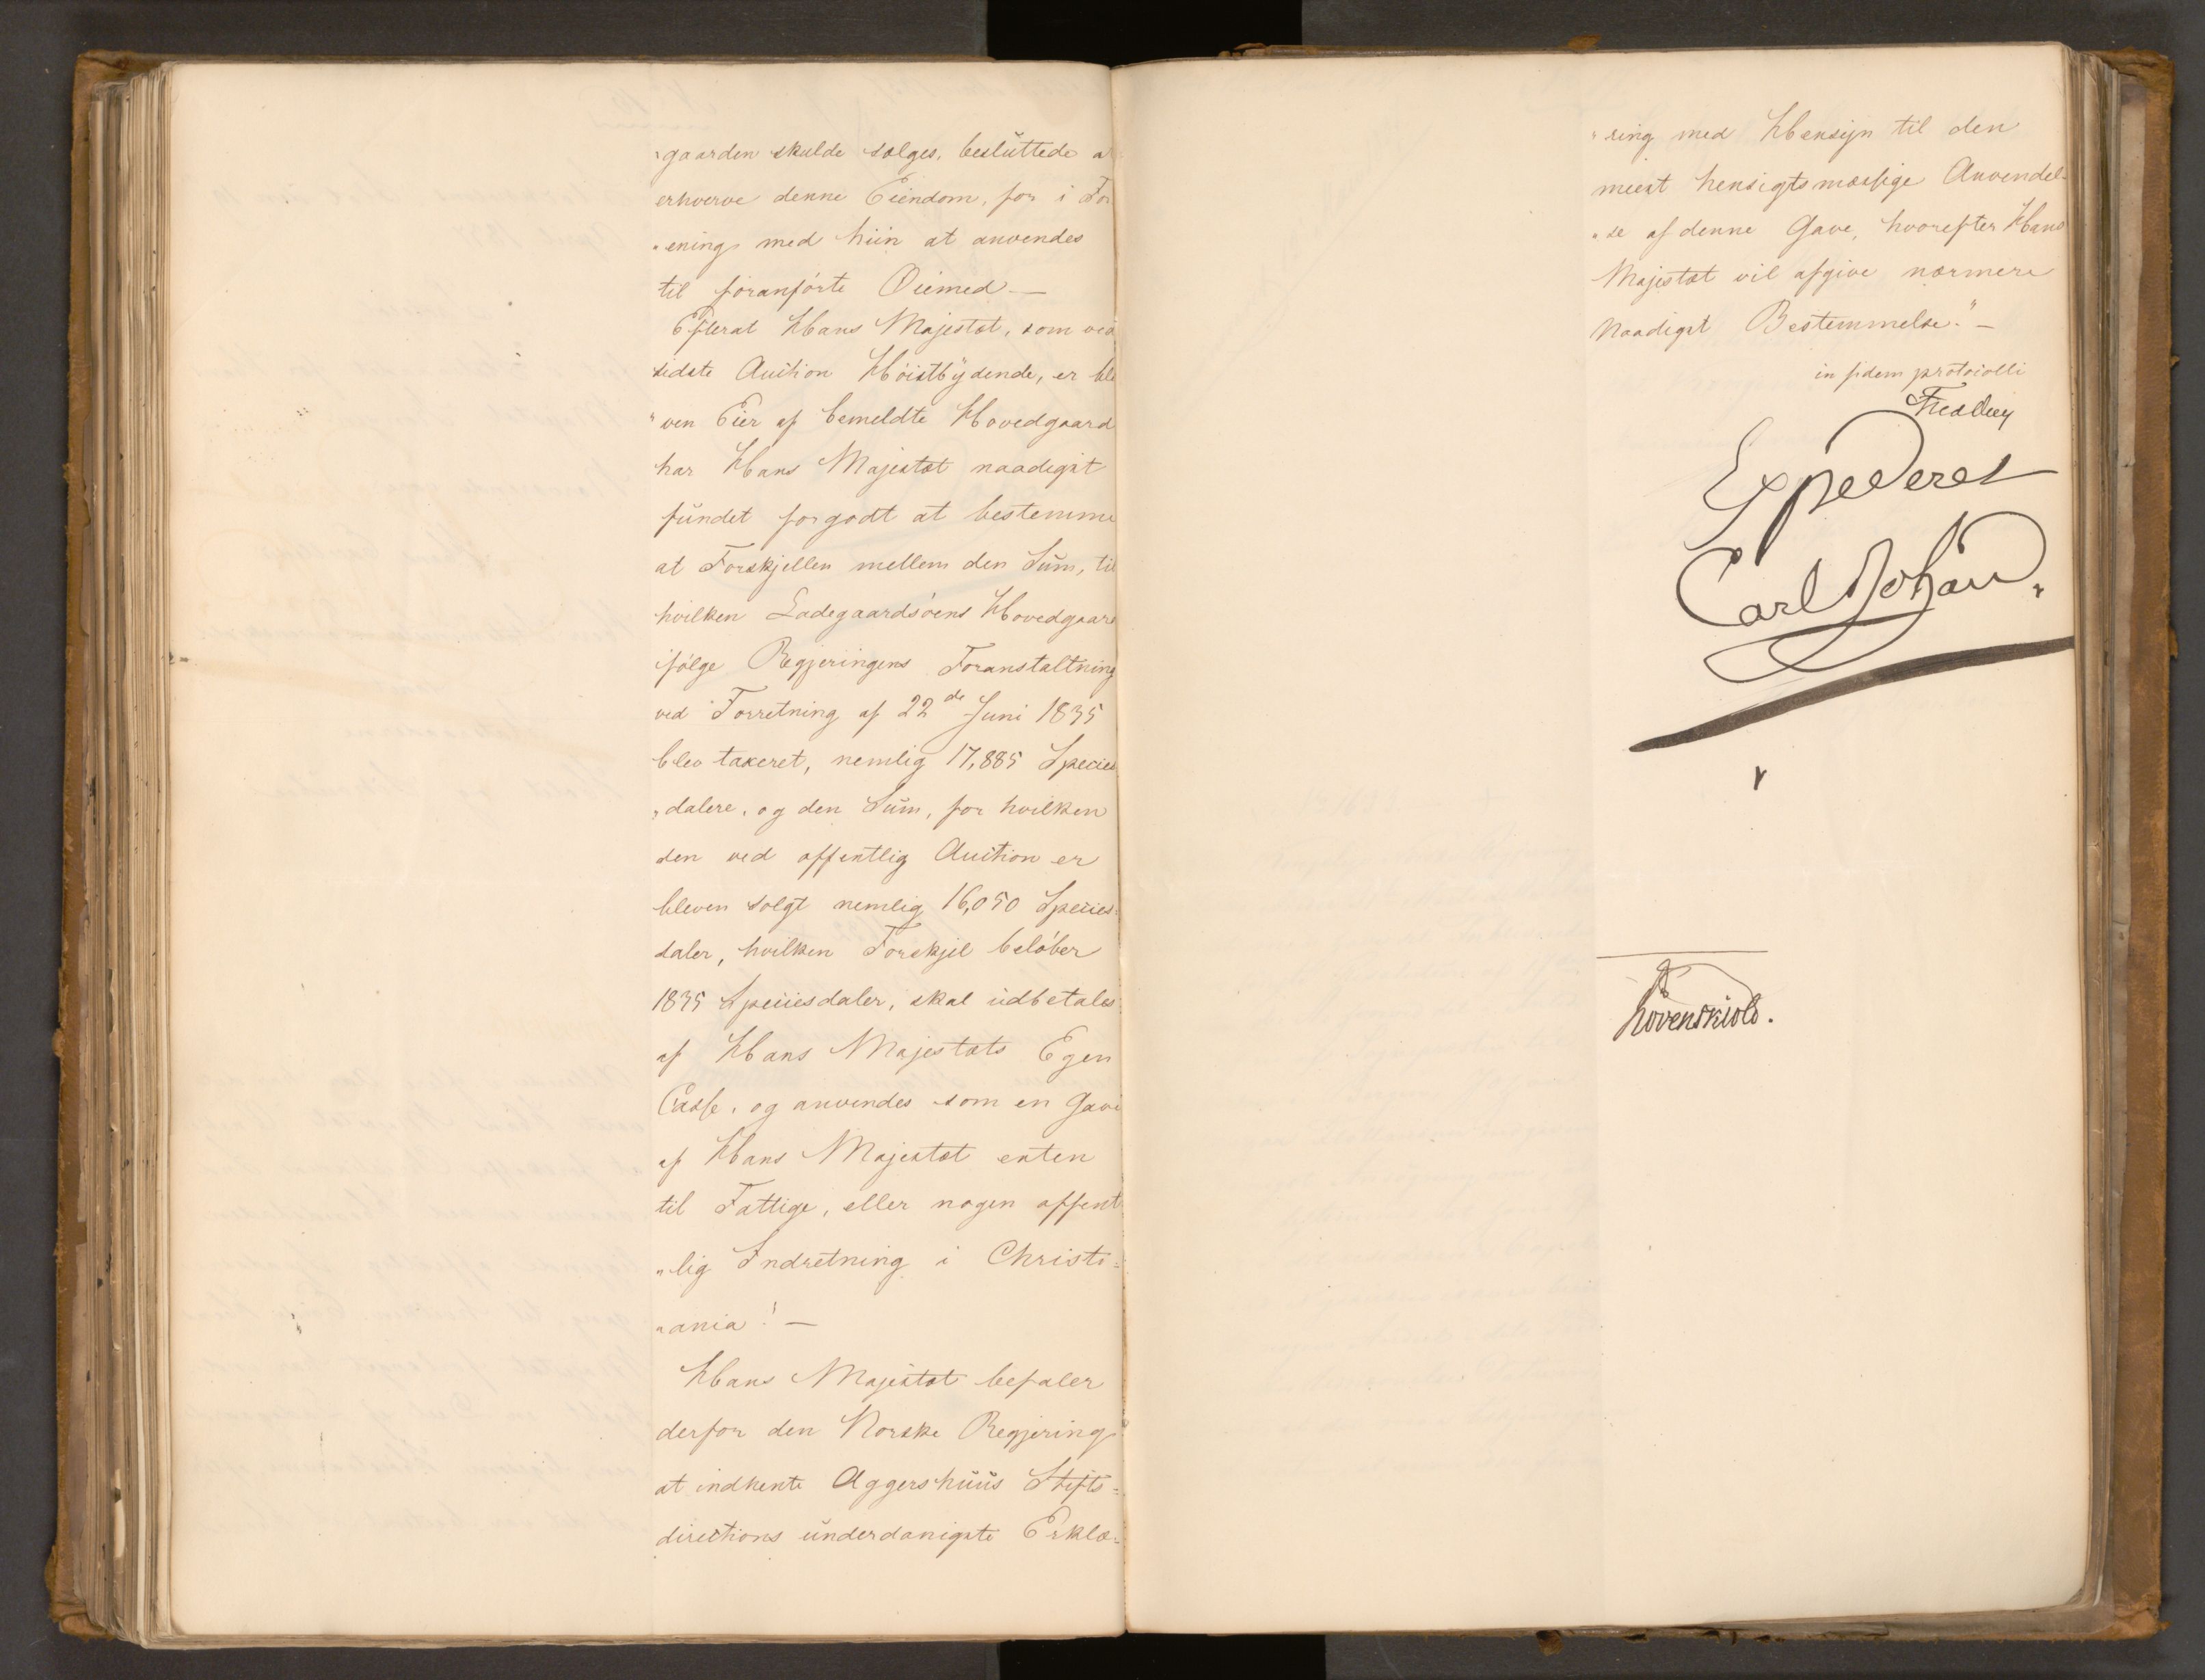 "gaarden skulde sælges, besluttede at
erhverve denne Eiendom, for i For
"ening med hiin at anvendes
til foranførte Øiemed —
Efterat Hans Majestæt, som ved
sidste Auction Høistbydende, er ble
"ven Eier af bemeldte Hovedgaard
har Hans Majestæt naadigst
fundet for godt at bestemme
at Forskjellen mellem den Sum, til
hvilken Ladegaardsøens Hovedgaard
ifølge Regjeringens Foranstaltning
ved Forretning af 22de Juni 1835
blev taxeret, nemlig 17,885 Species
"dalere, og den Sum, for hvilken
den ved offentlig Auction er
bleven solgt nemlig 16,050 Species=
daler, hvilken Forskjel beløber
1835 Speciesdaler, skal udbetales
af Hans Majestæts Egen
Casse, og anvendes som en Gave
af Hans Majestæt enten
til Fattige, eller nogen offent
"lig Indretning i Christi=
"ania! —
Hans Majestæt befaler
derfor den Norske Regjering
at indhente Aggershuus Stifts=
directions underdanigste Erklæ=
"ring med Hensyn til den
meest hensigtsmæssige Anvendel=
"se af denne Gave, hvorefter Hans
Majestæt vil afgive nærmere
Naadigst Bestemmelse." —
in fidem protocolli
Expederet
Carl Johan.
Løvenskiold.